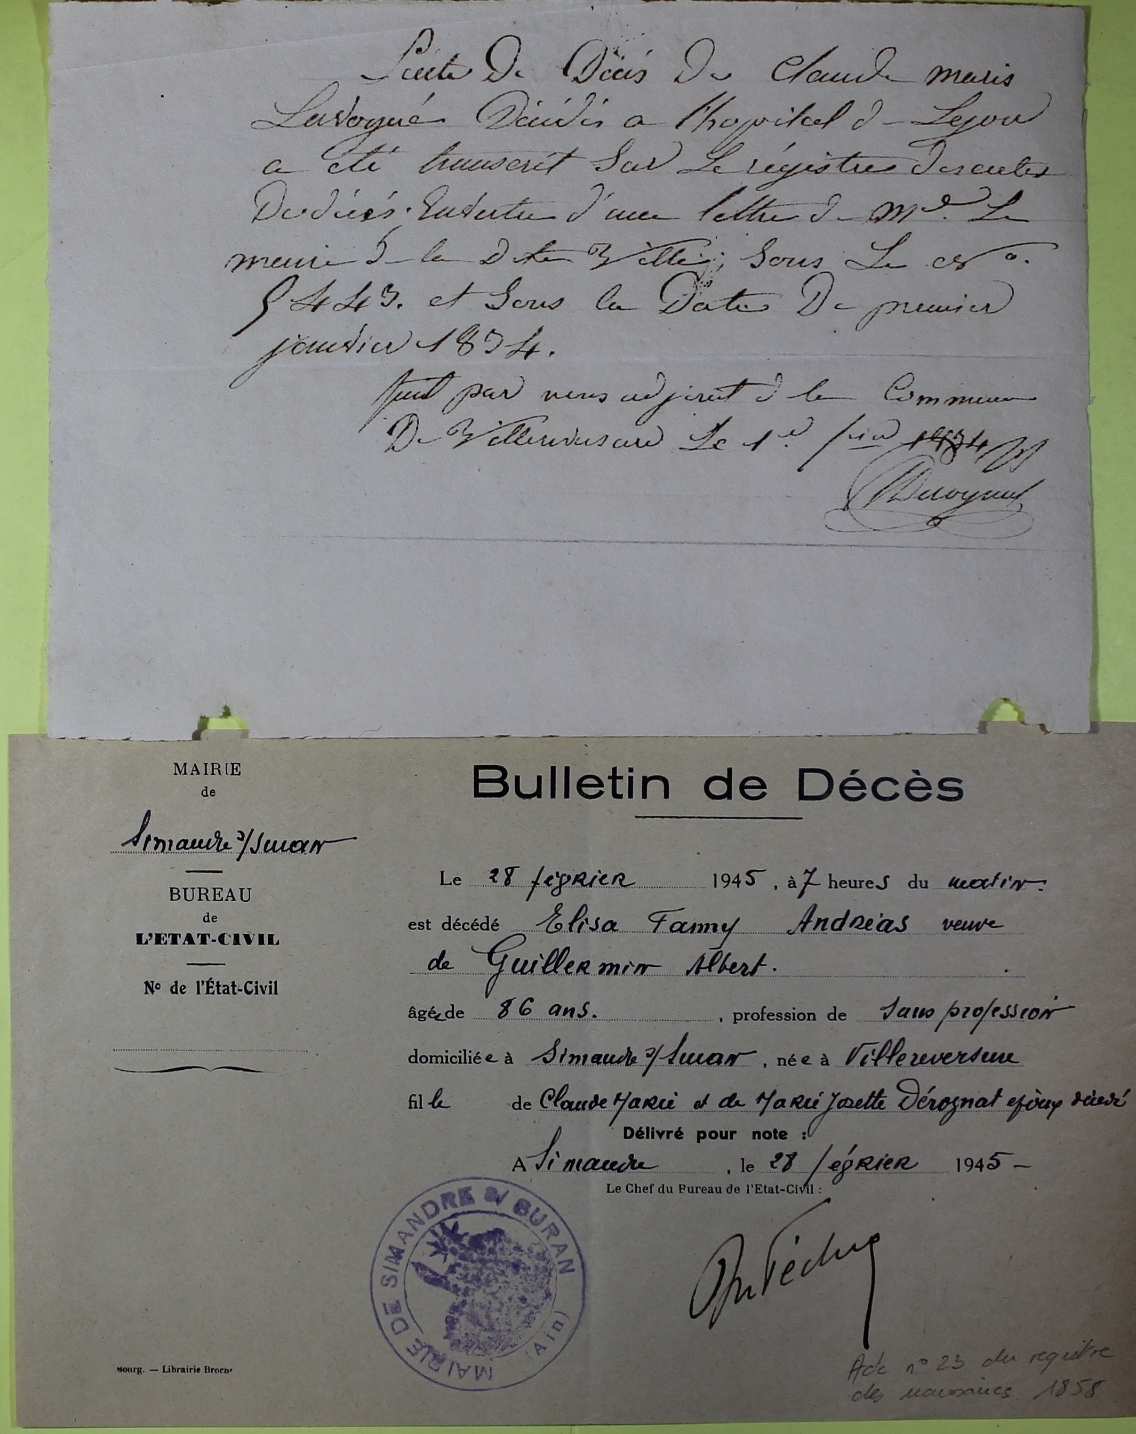 de Décès de Claude marie
Décédés a l'hopital de Leyon
a été transcrit Sur Le régistres des actes
De décés. d'une lettre de Mr. Le
maire de la dte Ville, Sous Le No.
5443. et Sous la Date De premier
janvier 1834.
fait par nous adjoint de la Commune
De Villereversure Le 1er. 1834
Derognat
MAIRIE
de
Simandre s/Suran
BUREAU
de
L'ETAT-CIVIL
No de l'État-Civil
Bulletin de Décès
Le 28 février 1945, à 7 heures du matin.
est décédé Elisa Fanny Andréas veuve
de Guillermin Albert.
âgée de 86 ans. , profession de Sans profession
domiciliée à Simandre s/Suran , née à Villereversure
fille de Claude Marie et de Marie Josette Dérognat époux décédé
Délivré pour note :
A Simandre , le 28 février 1945 —
Le Chef du Bureau de l'Etat-Civil :
MAIRIE DE SIMANDRE S/ SURAN
(Ain)
Bourg. — Librairie Brochot
Acte n° 23 du registre
des naissances 1858